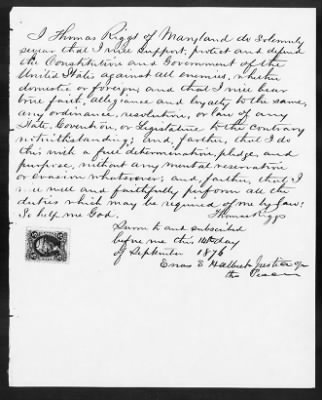 I Thomas Riggs of Maryland do Solemnly
swear that I will support, protect and defend
the Constitution and Government of the
United States against all enemies, whether
domestic or foreign, and that I will bear
true faith, allegiance and loyalty to the same,
any ordinance, resolution, or law of any
State, Convention, or Legislature to the contrary
notwithstanding; and, further, that I do
this with a full determination, pledge, and
purpose, without any mental reservation
or evasion whatsoever; and, further, that I
will well and faithfully perform all the
duties which may be required of me by law:
So help me God. Thomas Riggs
Sworn to and subscribed
before me this 12th day
of September 1876
Justice of
the Peace